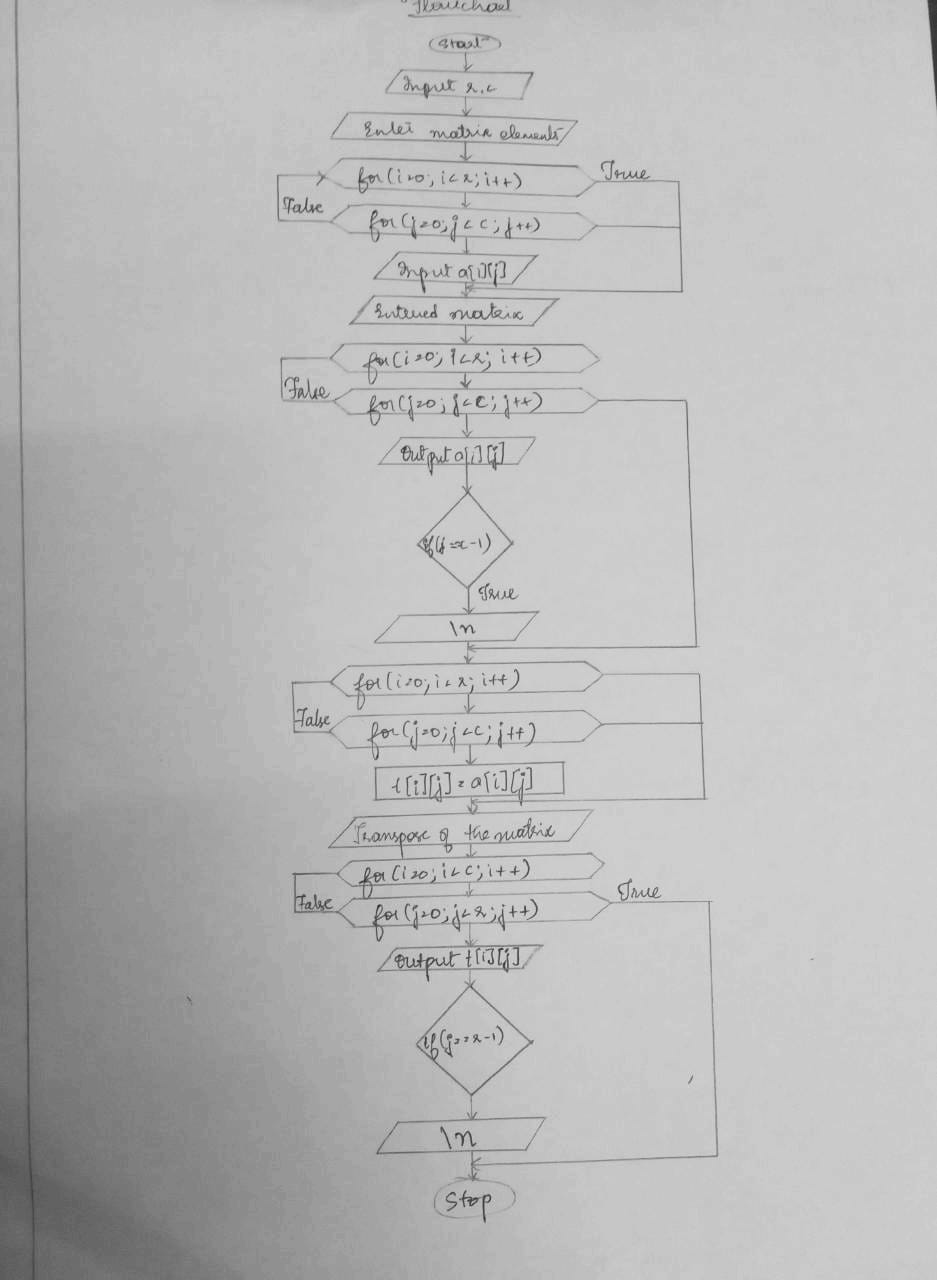 Flowchart
Start
Input r,c
Enter matrix elements
for(i=0; i<r; i++) True
False
for(j=0; j<c; j++)
Input a[i][j]
Entered matrix
for(i=0; i<r; i++)
False
for(j=0; j<c; j++)
Output a[i][j]
if(j==c-1)
True
\n
for(i=0; i<r; i++)
False
for(j=0; j<c; j++)
t[i][j] = a[i][j]
Transpose of the matrix
for(i=0; i<c; i++)
True
False
for(j=0; j<r; j++)
Output t[i][j]
if(j==r-1)
\n
Stop